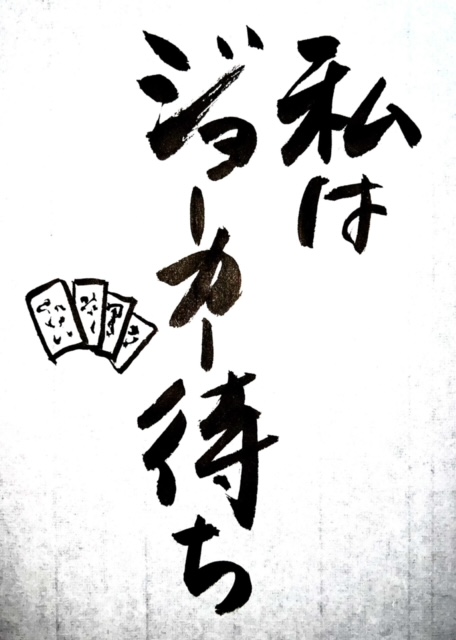 私は
ジョーカー待ち